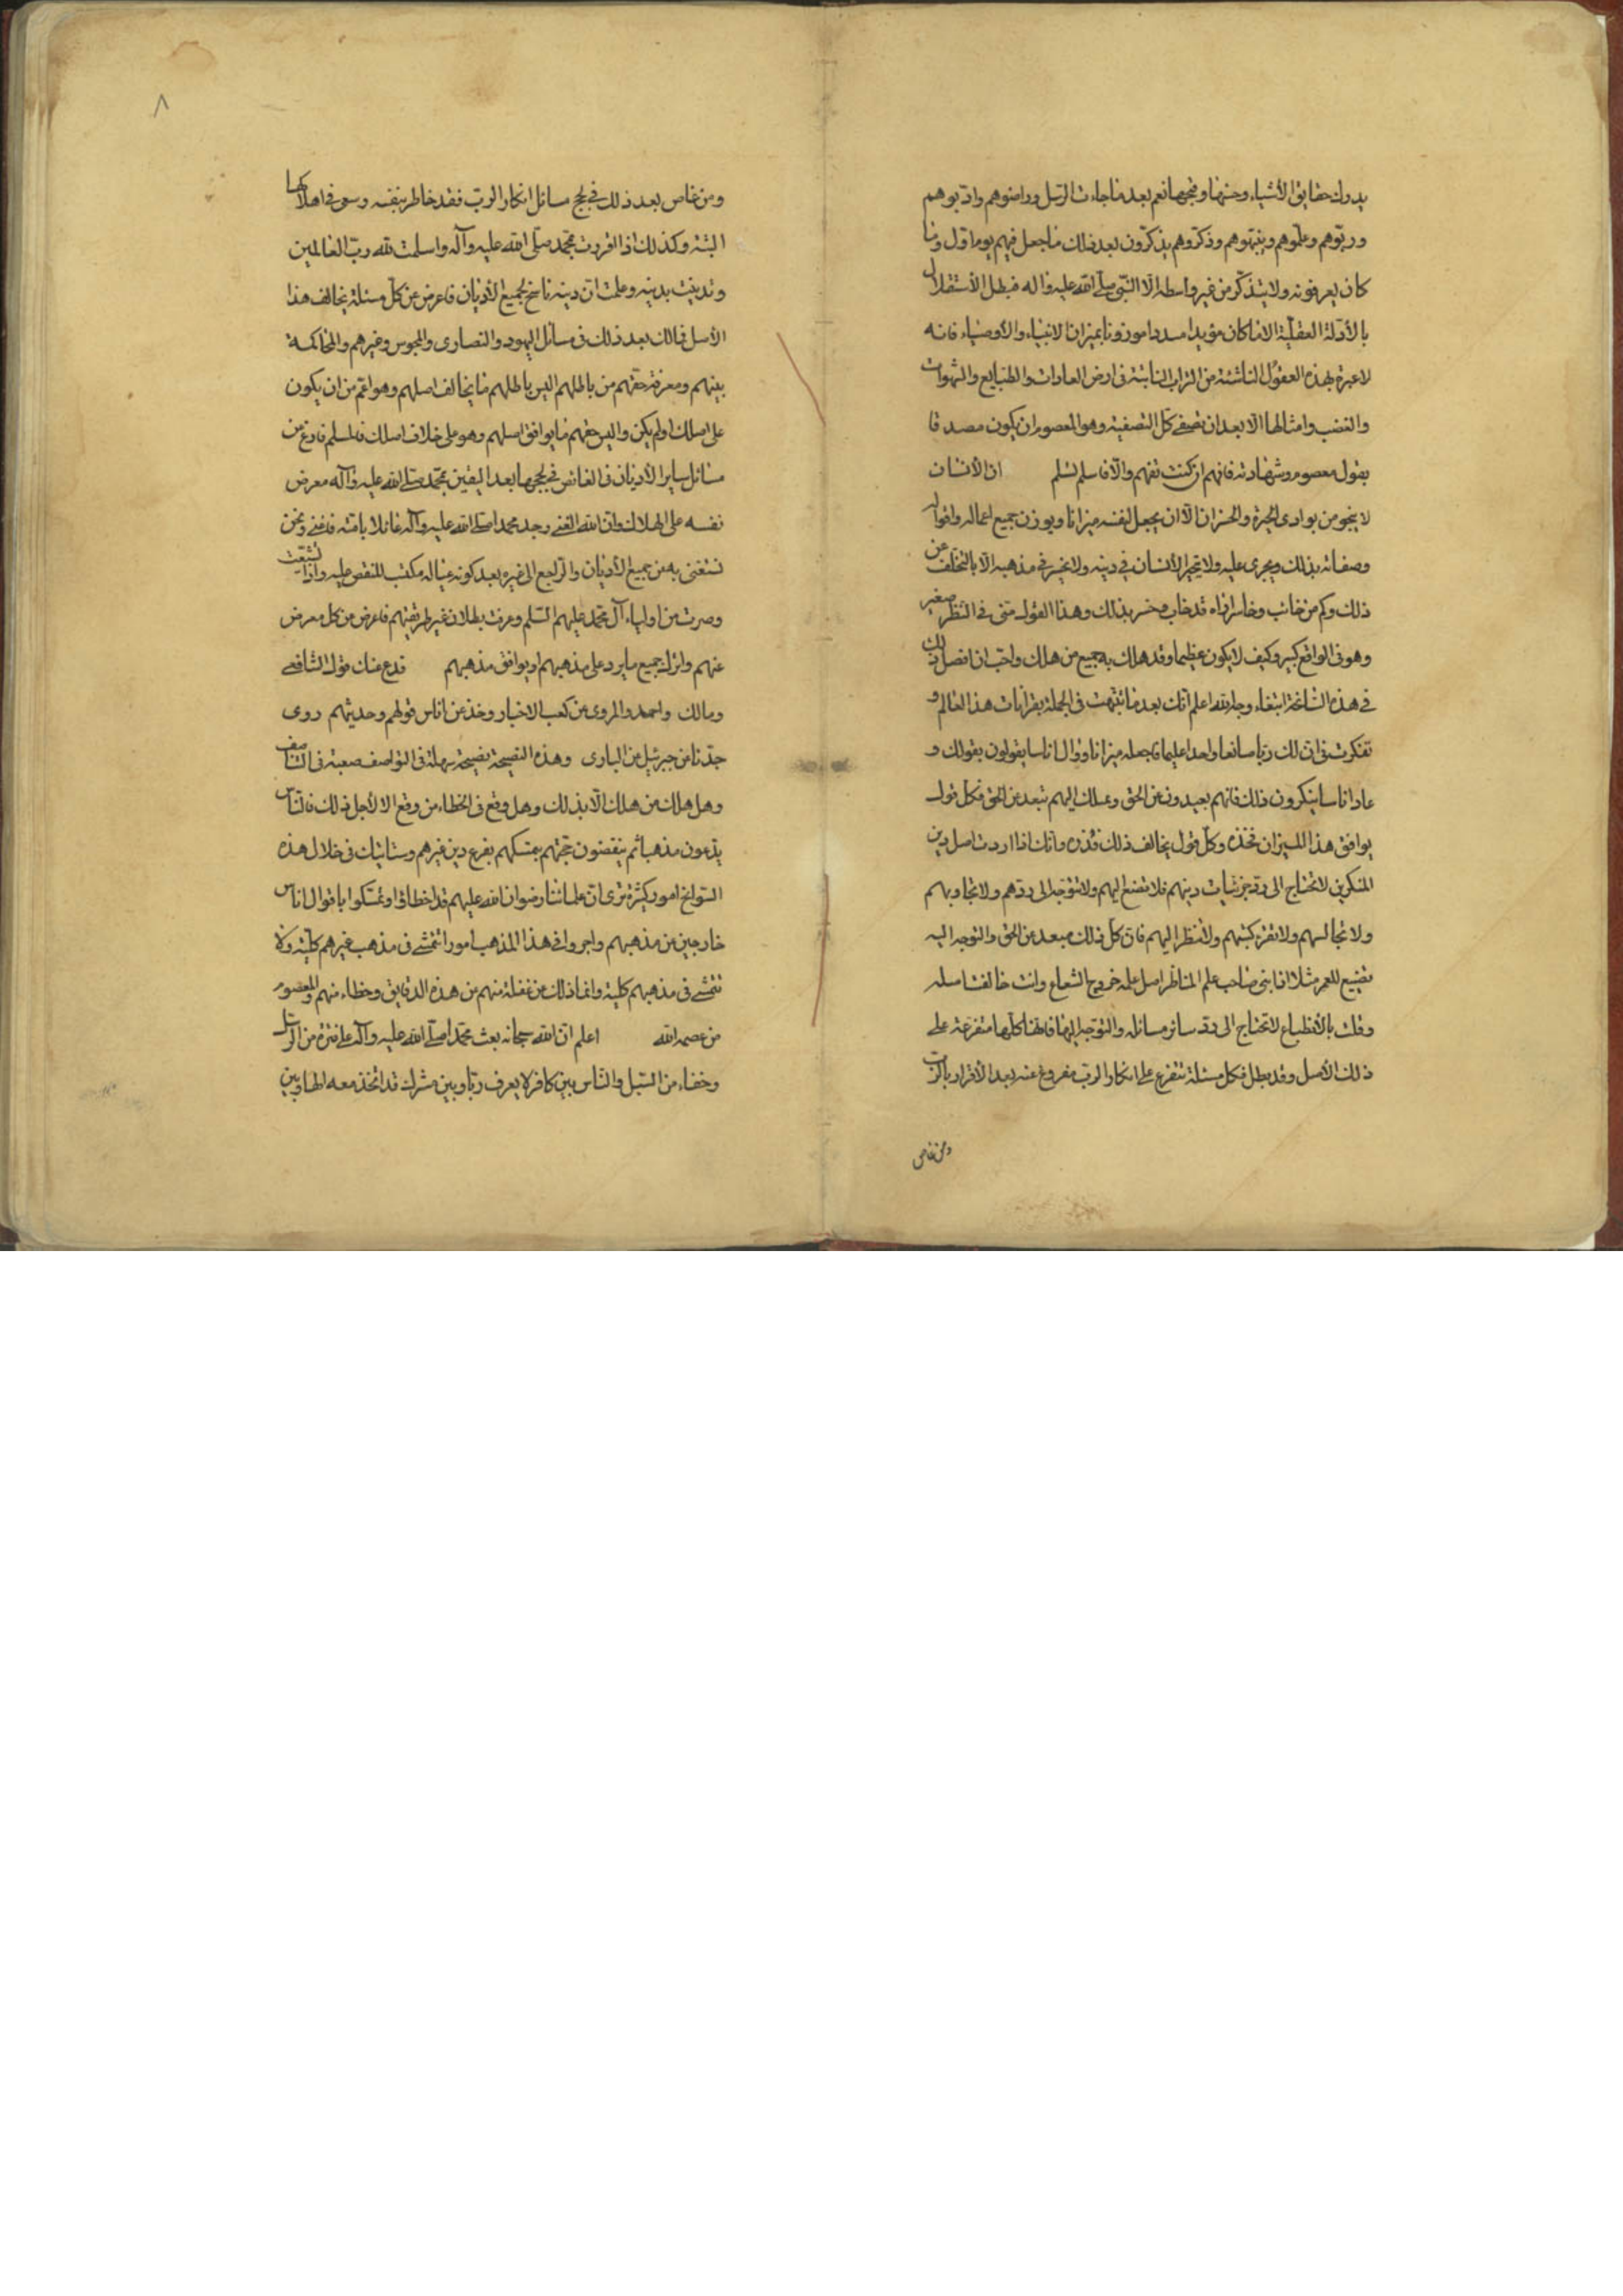 يدرك حقايق الأشياء وحسنها وقبحها نعم بعد ما جاءت الرسل وراضوهم وادّبوهم
وربّوهم وعلّموهم ونبّهوهم وذكّروهم يذكّرون بعد ذلك ما جعل فيهم يوما قول وما
كان يعرفونه ولا يتذكّر من غير واسطة الّا النبّي صلّى الله عليه واله فبطل الأستقلال
بالأدلّة العقليّة الا ما كان مؤيدا مسددا موزونا بميزان الانبياء والأوصياء فانه
لا عبرة بهذه العقول الناشئة من التراب النابتة فى ارض العادات والطبايع والشهوات
والغضب وامثالها الّا بعد ان تصفى كلّ التصفية وهو المعصوم ان يكون مصدقا
بقول معصوم وشهادته فافهم ان كنت تفهم والّا فاسلم تسلم ان الأنسان
لا ينجو من بوادى الحيرة والخسران الّا ان يجعل لنفسه ميزانا ويوزن جميع اعماله واقواله
وصفاته بذلك ويجرى عليه ولا يتحير الأنسان فى دينه ولا يخسر فى مذهبه الّا بالتخلّف عن
ذلك وكم من خائب وخاسر اراه قد خاب وخسر بذلك وهذا القول منّى فى النظر صغير
وهو فى الواقع كبير وكيف لا يكون عظيما وقد هلك به جميع من هلك واحبّ ان افصل ذلك
فى هذه الساعة ابتغاء وجه الله اعلم انّك بعد ما تنبّهت فى الجملة بقرانات هذا العالم و
تفكرت فى ان لك ربا صانعا واحدا عليما فاجعله ميزانا ووال اناسا يقولون بقولك و
عاد اناسا ينكرون ذلك فانهم بعيدون عن الحق وميلك اليهم تبعد عن الحق فكل قول
يوافق هذا الميزان فخذه وكلّ قول يخالف ذلك فذره وانّك اذا اردت اصل دين
المنكرين لا تحتاج الى ردّ جزئيات دينهم فلا تصغ اليهم ولا تتوجه الى ردّهم ولا تجاوبهم
ولا تجالسهم ولا تقرء كتبهم ولا تنظر اليهم فان كلّ ذلك مبعد عن الحق والتوجه اليه
تضييع للعمر مثلا اذا بنى صاحب علم المناظر اصل علمه خروج الشعاع وانت خالفت اصله
وقلت بالأنطباع لا تحتاج الى ردّ سائر مسائله والتوجّه اليها فانها كلّها متفرّعة على
ذلك الأصل وقد بطل فكل مسئلة تتفرع على انكار الرب مفروغ عنه بعد الأقرار بالربّ
ومن غاص
٨
ومن غاص بعد ذلك فى لجج مسائل انكار الربّ فقد خاطر بنفسه وسعى فى اهلاكها
البتة وكذلك اذا اقررت بمحمد صلّى الله عليه وآله واسلمت لله ربّ العالمين
وتدينت بدينه وعلمت انّ دينه ناسخ لجميع الأديان فاعرض عن كلّ مسئلة يخالف هذا
الأصل فمالك بعد ذلك فى مسائل اليهود والنصارى والمجوس وغيرهم والمحاكمة
بينهم ومعرفة حقهم من باطلهم اليس باطلهم ما يخالف اصلهم وهو اعمّ من ان يكون
على اصلك اولم يكن واليس حقهم ما يوافق اصلهم وهو على خلاف اصلك فالمسلم فارغ عن
مسائل ساير الأديان فالغائص فى لججها بعد اليقين بمحمّد صلّى الله عليه وآله معرض
نفسه على الهلاك وان الله الغنى وجد محمدا صلّى الله عليه وآله عائلا بامّته فاغنى ونحن
نستغنى به عن جميع الأديان والراجع الى غيره بعد كونه عياله مكتب للنقص عليه واذا تشيّعت
وصرت من اولياء آل محمّد عليهم السّلم وعرفت بطلان غير طريقتهم فاعرض من كل معرض
عنهم واترك جميع ما يرد على مذهبهم او يوافق مذهبهم فدع عنك قول الشافعى
ومالك واحمد والمروى عن كعب الاخبار وخذ عن اناس قولهم وحديثهم روى
جدّنا عن جبرئيل عن البارى وهذه النصيحة نصيحة سهلة فى التواصف صعبة فى التناصف
وهل هلك من هلك الّا بذلك وهل وقع فى الخطاء من وقع الا لأجل ذلك فالناس
يدّعون مذهبا ثم ينقضون حجّتهم بتمسكهم بفرع دين غيرهم وستاتيك فى خلال هذه
السوانح امور كثيرة ترى ان علمائنا رضوان الله عليهم قد اخطاؤا وتمسّكوا باقوال اناس
خارجين من مذهبهم واجروا فى هذا المذهب امورا تتمشّى فى مذهب غيرهم كليّة ولا
تتمشّى فى مذهبهم كلية وانما ذلك من غفلة منهم من هذه الدقايق وخطاء منهم والمعصوم
من عصمه الله اعلم انّ الله سبحانه بعث محمّدا صلّى الله عليه وآله على فترة من الرسل
وخفاء من السّبل والنّاس بين كافر لا يعرف ربّا وبين مشرك قد اتخذ معه الها وبين